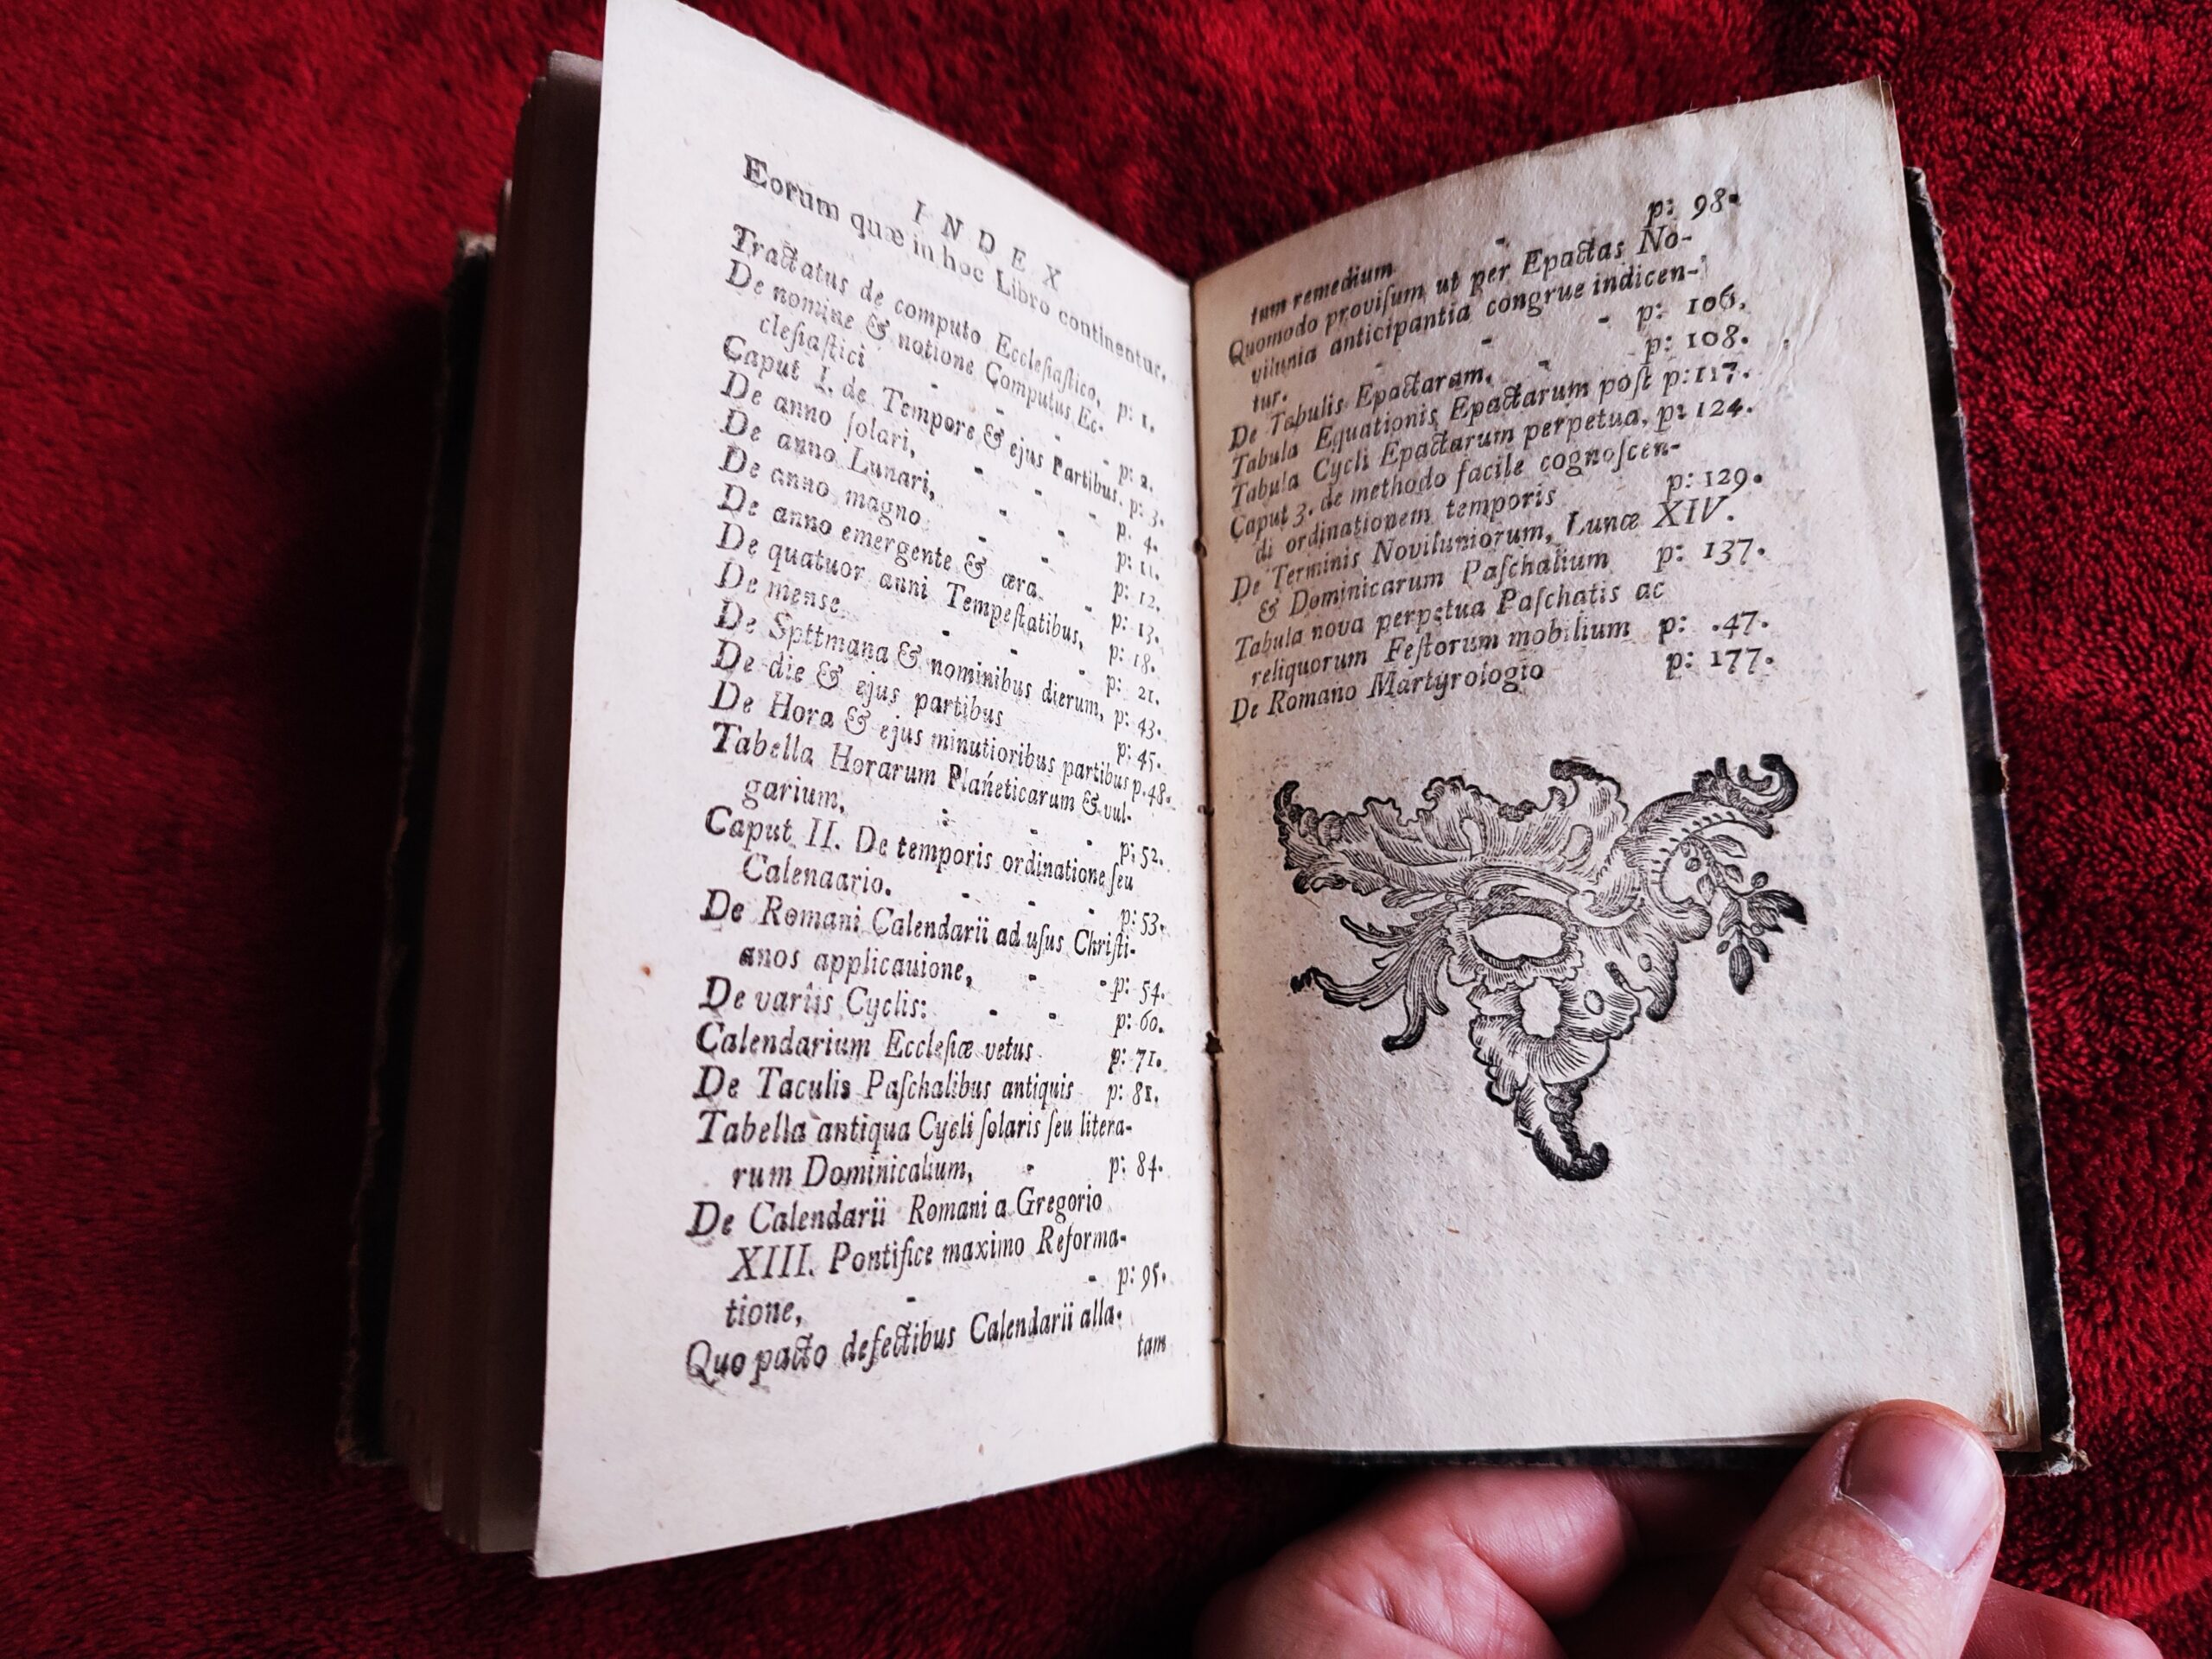 INDEX
Eorum quæ in hoc Libro continentur.
Tractatus de computo Eccleſiaſtico, p: 1.
De nomine & notione Computus Ec-
cleſiaſtici - - - p: 2.
Caput I. de Tempore & ejus Partibus. p: 3.
De anno ſolari, - - - p. 4.
De anno Lunari, - - - p: 11.
De anno magno - - p: 12.
De anno emergente & æra - p: 13.
De quatuor anni Tempeſtatibus, p: 18.
De mense - - - p: 21.
De Spttmana & nominibus dierum, p: 43.
De die & ejus partibus p: 45.
De Hora & ejus minutioribus partibus p. 48.
Tabella Horarum Planeticarum & vul-
garium, - - - p: 52.
Caput II. De temporis ordinatione ſeu
Calenaario. - - - p: 53.
De Romani Calendarii ad uſus Chriſti-
anos applicauione, - - p: 54.
De variis Cyclis: - - p: 60.
Calendarium Eccleſiæ vetus p: 71.
De Taculis Paſchalibus antiquis p: 81.
Tabella antiqua Cycli ſolaris ſeu litera-
rum Dominicalium, - p: 84.
De Calendarii Romani a Gregorio
XIII. Pontifice maximo Reforma-
tione, - - p: 95.
Quo pacto defectibus Calendarii alla-
tam
tum remedium - p: 98.
Quomodo proviſum ut per Epactas No-
vilunia anticipantia congrue indicen-
tur. - - - p: 106.
De Tabulis Epactaram. - p: 108.
Tabula Equationis Epactarum poſt p: 117.
Tabula Cycli Epactarum perpetua, p: 124.
Caput 3. de methodo facile cognoſcen-
di ordinationem temporis p: 129.
De Terminis Noviluniorum, Lunæ XIV.
& Dominicarum Paſchalium p: 137.
Tabula nova perpetua Paſchatis ac
reliquorum Feſtorum mobilium p: .47.
De Romano Martyrologio p: 177.